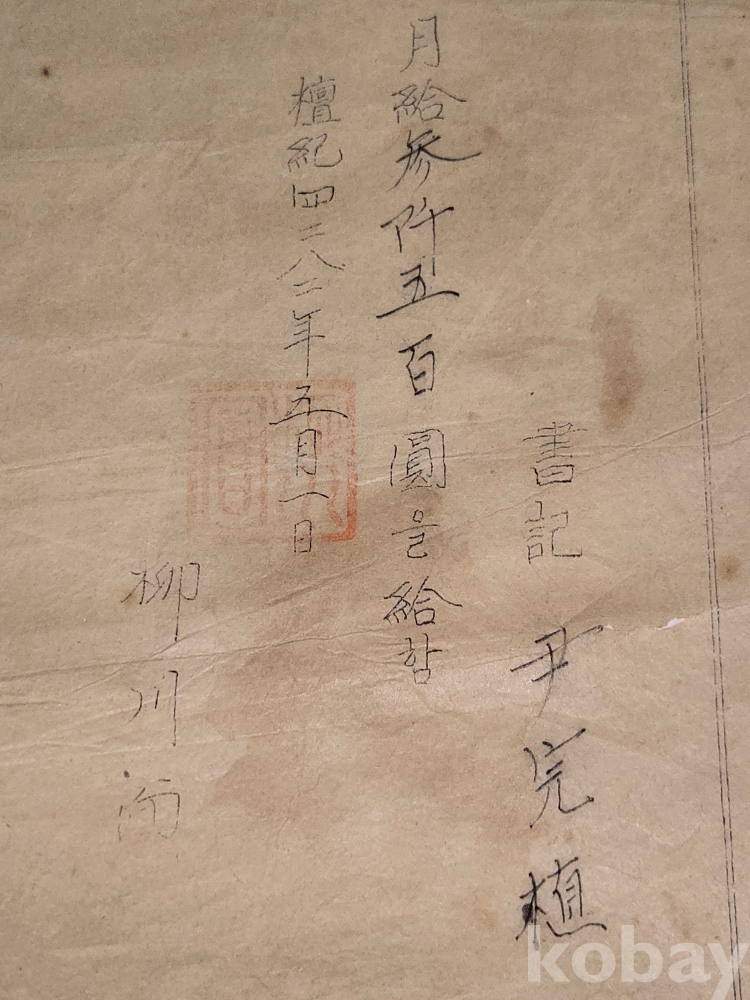 書記 尹完植
月給參阡五百圓을給함
檀紀四二八二年五月一日
柳川面
kobay